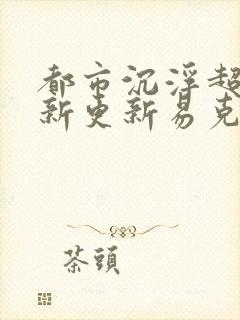 都市沉浮超
新更新易克
茶頭